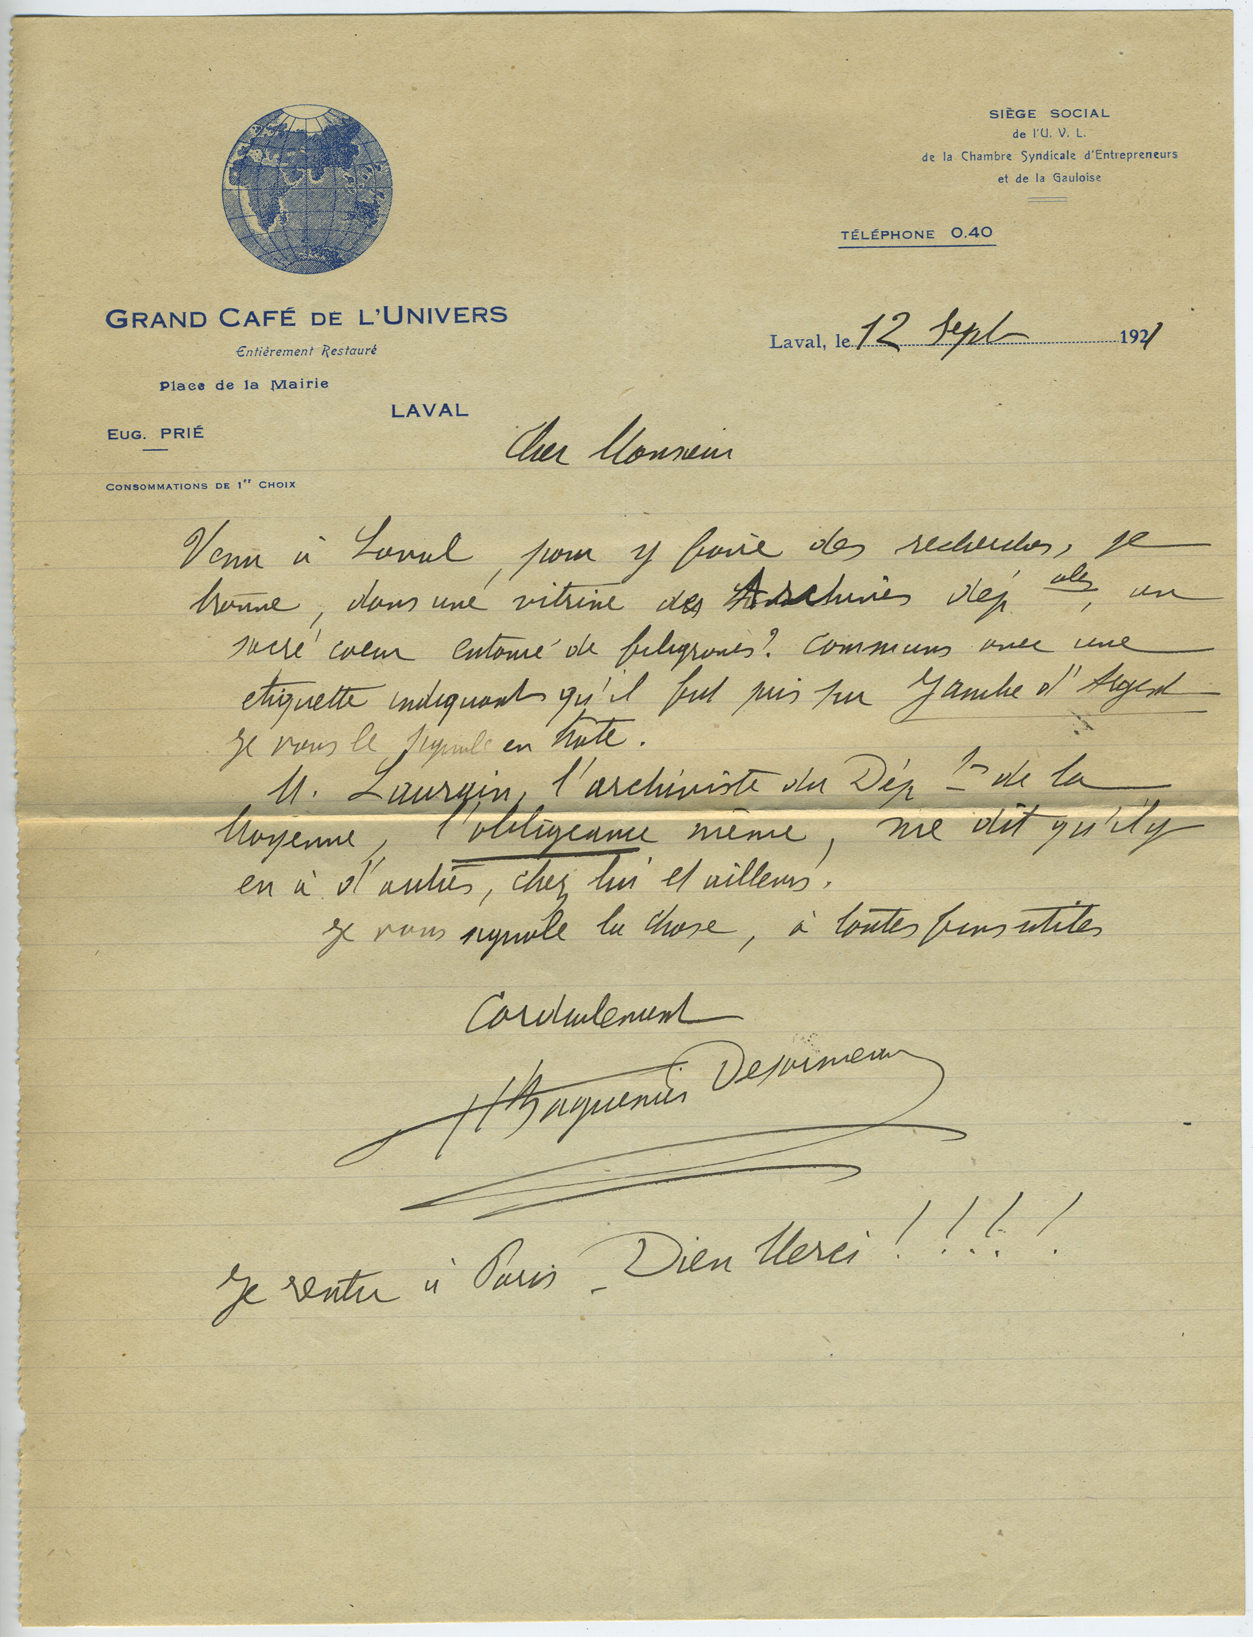 SIÈGE SOCIAL
de l'U. V. L.
de la Chambre Syndicale d'Entrepreneurs
et de la Gauloise
TÉLÉPHONE 0.40
GRAND CAFÉ DE L'UNIVERS
Entièrement Restauré
Place de la Mairie
LAVAL
EUG. PRIÉ
CONSOMMATIONS DE 1er CHOIX
Laval, le 12 Sept 1921
Cher Monsieur
Venu à Laval, pour y faire des recherches, je
trouve, dans une vitrine des Archives dép ales, un
sacré coeur entouré de filigranes? communs avec une
etiquette indiquant qu'il fut pris sur Jambe d'Argent
Je vous le signale en hâte.
M. Laurain, l'archiviste du Dép t de la
Mayenne, l'obligeance même, me dit qu'il y
en à d'autres, chez lui et ailleurs.
Je vous signale la chose, à toutes fins utiles
Cordialement
H Baguenier Desormeaux
Je rentre à Paris - Dieu Merci !!!!